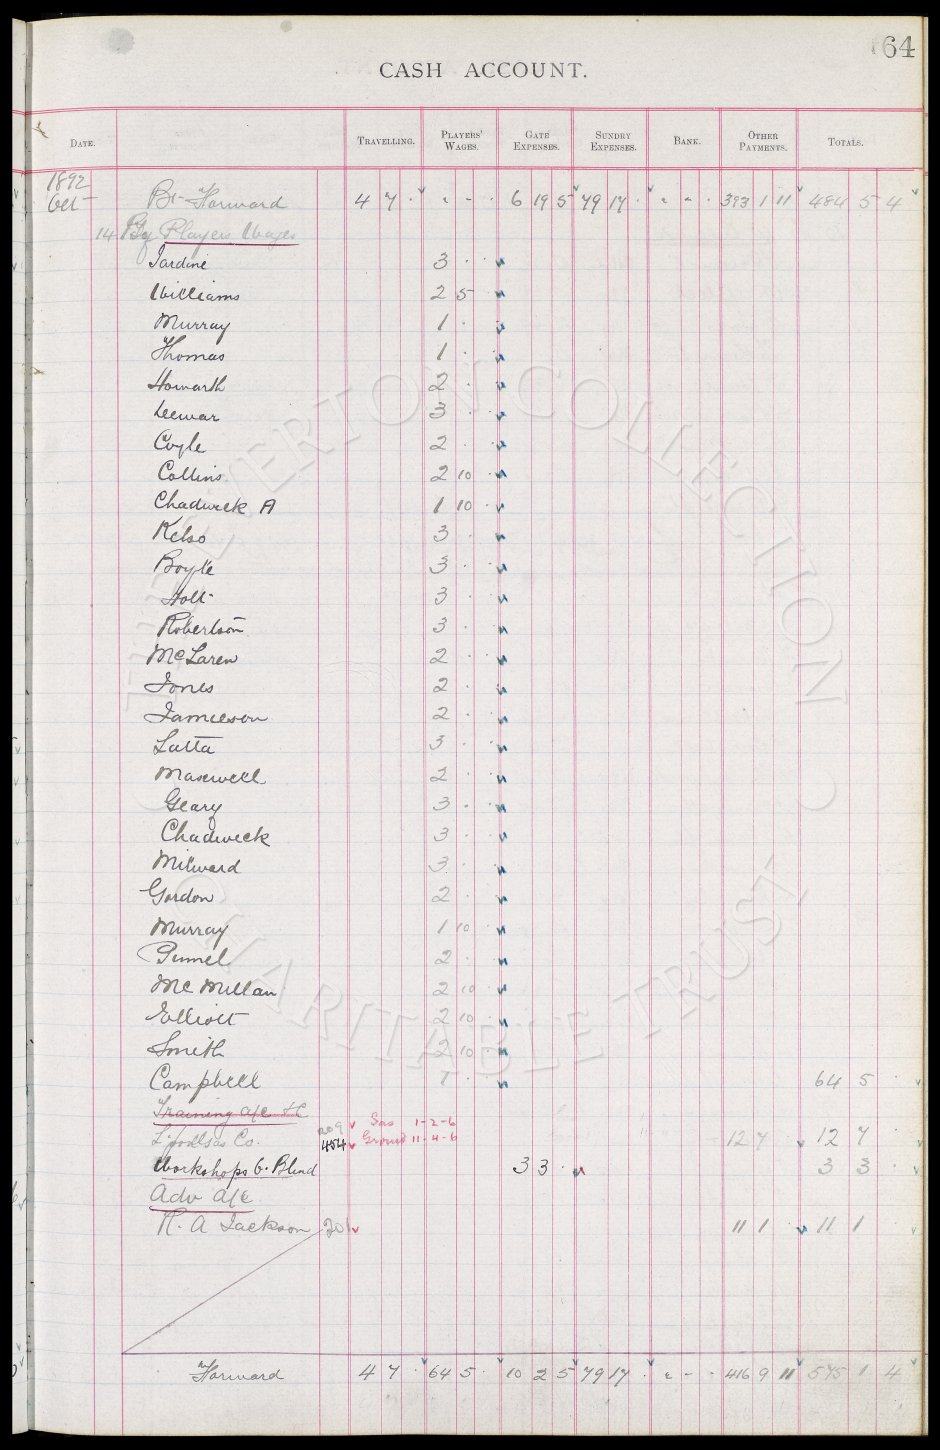 64
CASH ACCOUNT.
DATE. TRAVELLING. PLAYERS' WAGES. GATE EXPENSES. SUNDRY EXPENSES. BANK. OTHER PAYMENTS. TOTALS.
1892
Oct Bt Forward 4 7 . " - . 6 19 5 79 17 . " " . 393 1 11 484 5 4
14 By Players Wages
Jardine 3 . .
Williams 2 5 .
Murray 1 . .
Thomas 1 . .
Howarth 2 . .
Dewar 3 . .
Coyle 2 . .
Collins 2 10 .
Chadwick A 1 10 .
Kelso 3 . .
Boyle 3 . .
Holt 3 . .
Robertson 3 . .
McLaren 2 . .
Jones 2 . .
Jamieson 2 . .
Latta 3 . .
Maxwell 2 . .
Geary 3 . .
Chadwick 3 . .
Milward 3 . .
Gordon 2 . .
Murray 1 10 .
Pinnel 2 . .
McMillan 2 10 .
Elliott 2 10 .
Smith 2 10 .
Campbell 1 . . 64 5 .
Training a/c &c
209 Gas 1-2-6
L'pool Gas Co. 454 Ground 11-4-6 12 7 . 12 7 .
Workshops f. Blind 3 3 . 3 3 .
Adv a/c
R. A Jackson 201 11 1 . 11 1 .
Forward 4 7 . 64 5 . 10 2 5 79 17 . " - . 416 9 11 575 1 4
THE EVERTON COLLECTION
CHARITABLE TRUST